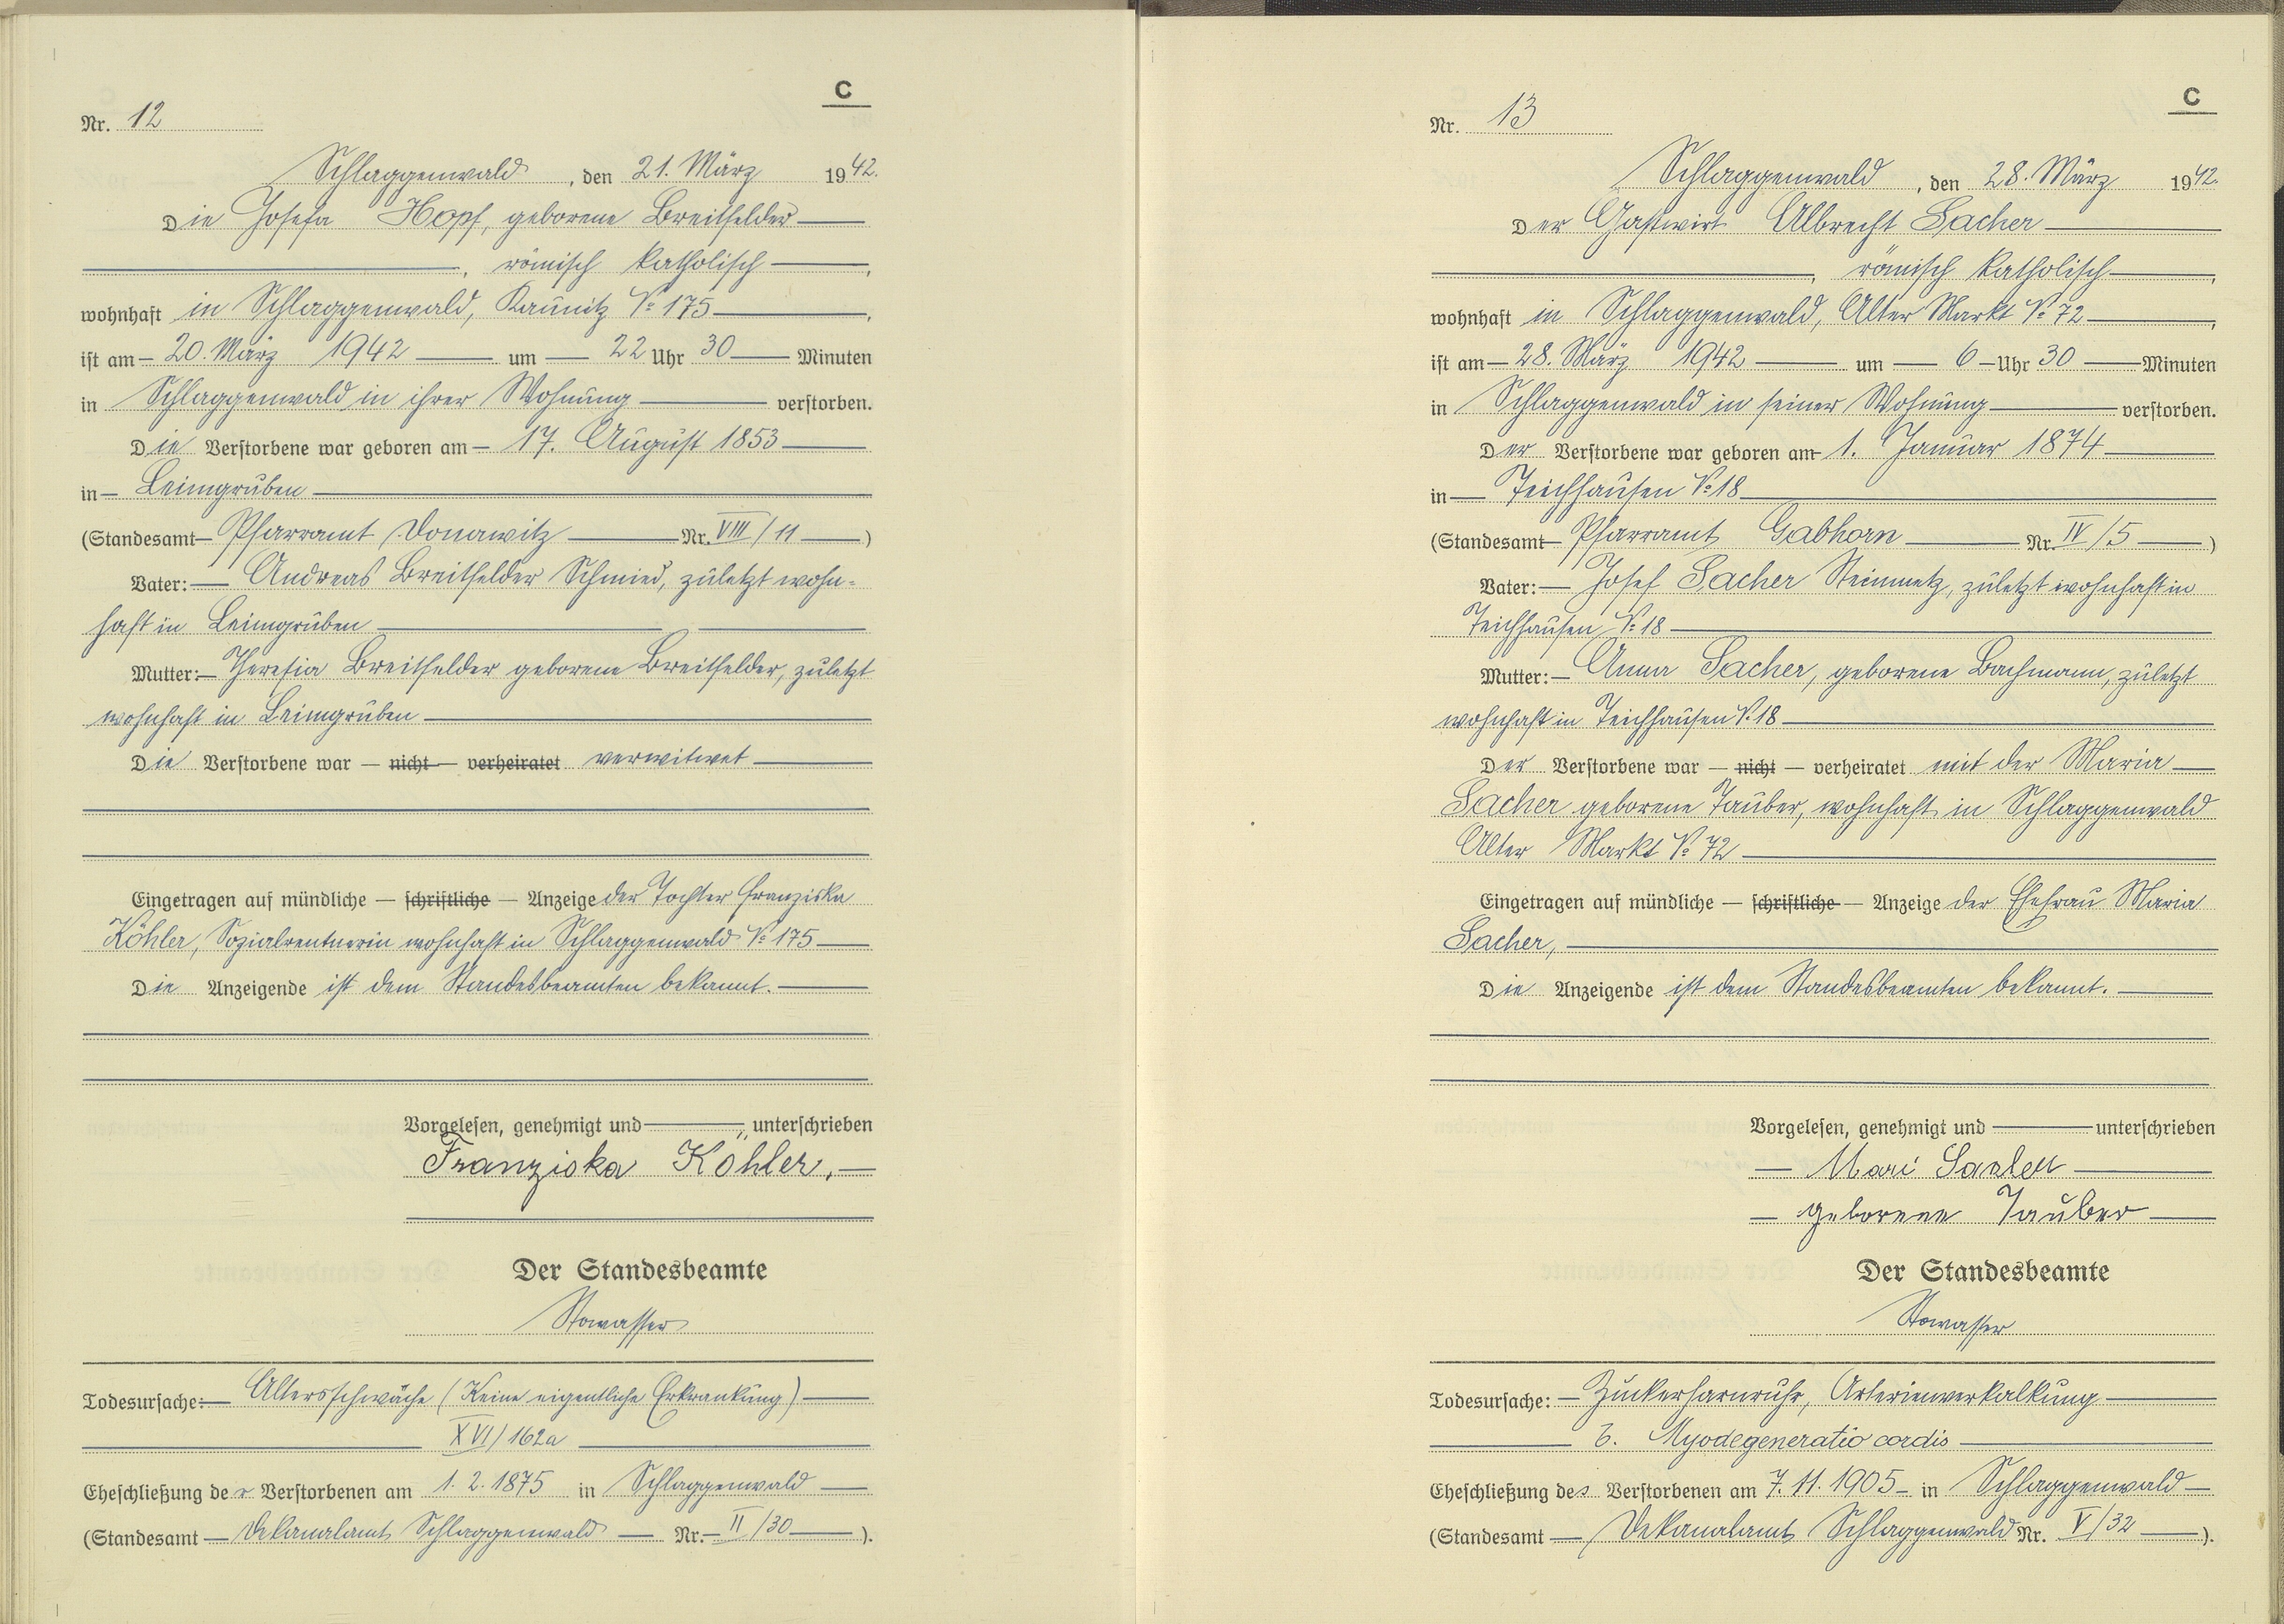 C
Nr. 12
Schlaggenwald, den 21. März 1942.
Die Josefa Hopf, geborene Breitfelder
, römisch katholisch ,
wohnhaft in Schlaggenwald, Kaunitz № 175 ,
ist am 20. März 1942 um 22 Uhr 30 Minuten
in Schlaggenwald in ihrer Wohnung verstorben.
Die Verstorbene war geboren am 17. August 1853
in Leimgruben
(Standesamt Pfarramt Donawitz Nr. VIII/11 )
Vater: Andreas Breitfelder Schmied, zuletzt wohn-
haft in Leimgruben
Mutter: Theresia Breitfelder geborene Breitfelder, zuletzt
wohnhaft in Leimgruben
Die Verstorbene war — nicht — verheiratet verwitwet
Eingetragen auf mündliche — schriftliche — Anzeige der Tochter Franziska
Köhler, Sozialrentnerin wohnhaft in Schlaggenwald № 175
Die Anzeigende ist dem Standesbeamten bekannt.
Vorgelesen, genehmigt und unterschrieben
Franziska Köhler,
Der Standesbeamte
Stowasser
Todesursache: Altersschwäche (Keine eigentliche Erkrankung)
XVI/162a
Eheschließung der Verstorbenen am 1. 2. 1875 in Schlaggenwald
(Standesamt Dekanalamt Schlaggenwald Nr. II/30 ).
C
Nr. 13
Schlaggenwald, den 28. März 1942.
Der Gastwirt Albrecht Sacher
, römisch katholisch ,
wohnhaft in Schlaggenwald, Alter Markt № 72 ,
ist am 28. März 1942 um 6 Uhr 30 Minuten
in Schlaggenwald in seiner Wohnung verstorben.
Der Verstorbene war geboren am 1. Januar 1874
in Teichhausen № 18
(Standesamt Pfarramt Gabhorn Nr. IV/5 )
Vater: Josef Sacher Steinmetz, zuletzt wohnhaft in
Teichhausen № 18
Mutter: Anna Sacher, geborene Bachmann, zuletzt
wohnhaft in Teichhausen № 18
Der Verstorbene war — nicht — verheiratet mit der Maria
Sacher geborene Tauber, wohnhaft in Schlaggenwald
Alter Markt № 72
Eingetragen auf mündliche — schriftliche — Anzeige der Ehefrau Maria
Sacher,
Die Anzeigende ist dem Standesbeamten bekannt.
Vorgelesen, genehmigt und unterschrieben
Mari Sacher
geborene Tauber
Der Standesbeamte
Stowasser
Todesursache: Zuckerharnruhr, Arterienverkalkung
b. Myodegeneratio cordis
Eheschließung des Verstorbenen am 7. 11. 1905 in Schlaggenwald
(Standesamt Dekanalamt Schlaggenwald Nr. V/32 ).